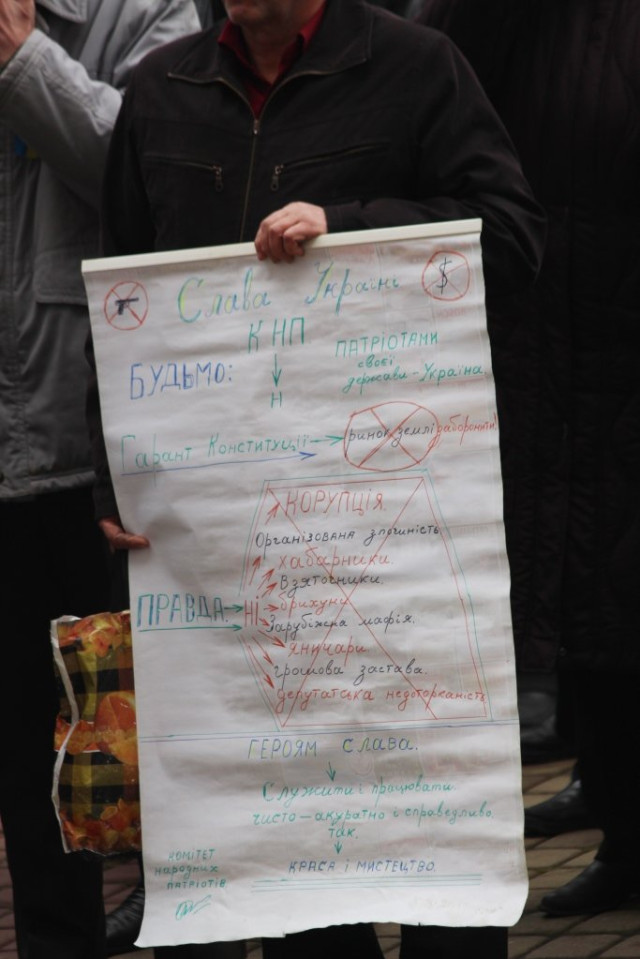 Слава Україні
$
КНП.
БУДЬМО:
Н
ПАТРІОТАМИ
своєї
держави-Україна
Гарант Конституції
ринок землі заборонити!
КОРУПЦІЯ.
Організована злочиність.
хабарники.
Взяточники.
ПРАВДА: НІ брихуни
Зарубіжна мафія.
яничари.
грошова застава.
депутатська недоторканість
ГЕРОЯМ СЛАВА.
Служити і працювати.
чисто-акуратно і справедливо.
так.
КРАСА і МИСТЕЦТВО.
КОМІТЕТ
народних
ПАТРІОТІВ